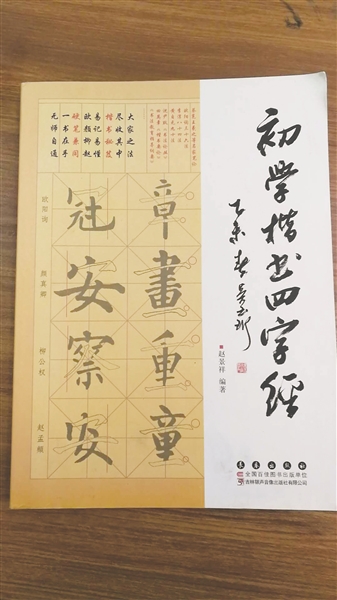 初學楷书四字經
乙未春
赵景祥 编著
大家之法
尽收其中
楷书秘笈
易记易懂
欧颜柳赵
硬笔兼同
一书在手
无师自通
章畫重童
冠安察安
欧阳询
颜真卿
柳公权
赵孟頫
长春出版社
全国百佳图书出版单位
吉林银声音像出版社有限公司